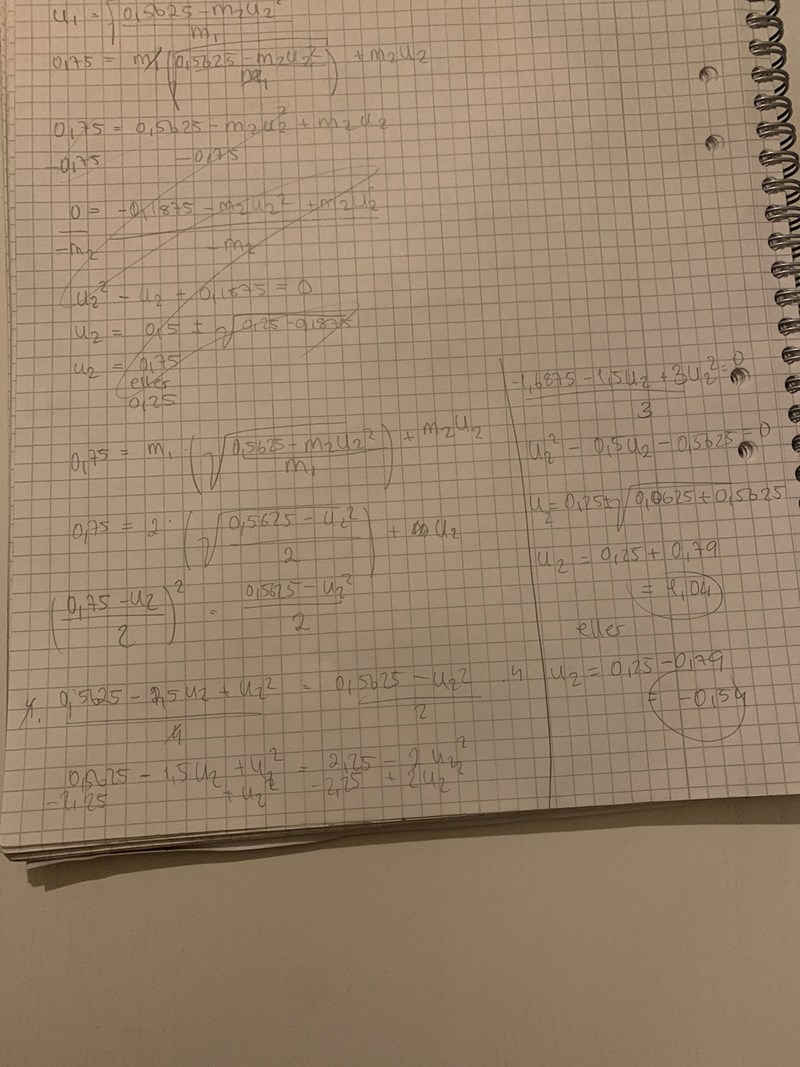 u₁ = √(0,5625 - m₂u₂² / m₁)
0,75 = m₁(√(0,5625 - m₂u₂² / m₁)) + m₂u₂
0,75 = 0,5625 - m₂u₂² + m₂u₂
-0,75 -0,75
0 = -0,1875 - m₂u₂² + m₂u₂
-m₂ -m₂
u₂² - u₂ + 0,1875 = 0
u₂ = 0,5 ± √(0,25 - 0,1875)
u₂ = 0,75
eller
0,25
0,75 = m₁ · (√(0,5625 - m₂u₂² / m₁)) + m₂u₂
0,75 = 2 · (√(0,5625 - u₂² / 2)) + u₂
(0,75 - u₂ / 2)² = 0,5625 - u₂² / 2
4. 0,5625 - 1,5u₂ + u₂² / 4 = 0,5625 - u₂² / 2 · 4
0,5625 - 1,5u₂ + u₂² = 2,25 - 2u₂²
-2,25 + u₂² -2,25 + 2u₂²
-1,6875 - 1,5u₂ + 3u₂² = 0
3
u₂² - 0,5u₂ - 0,5625 = 0
u₂ = 0,25 ± √(0,0625 + 0,5625)
u₂ = 0,25 + 0,79
= 1,04
eller
u₂ = 0,25 - 0,79
= -0,54